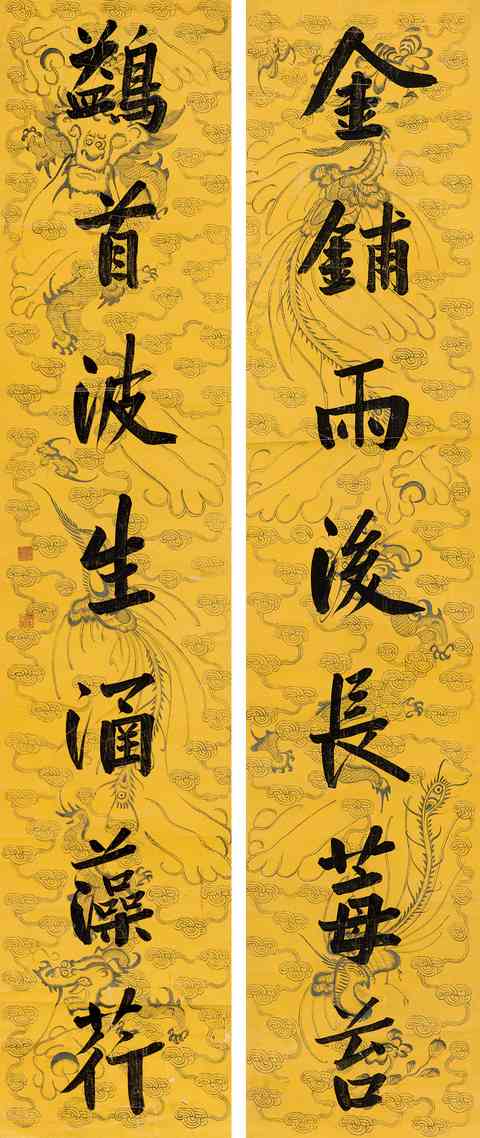 金鋪雨後長莓苔
鷁首波生涌藻荇